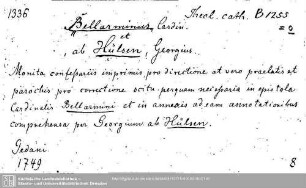 1336 Theol. cath. B 1255
Bellarminus, Cardin.
et
ab Hülsen, Georgius.
Monita confessariis imprimis pro directione at vero praelatis et
parochis pro correctione scitu perquam necessaria in epistola
Cardinalis Bellarmini et in annexis adeam annotationibus
comprehensa per Georgium ab Hülsen.
Gedani
1749 8